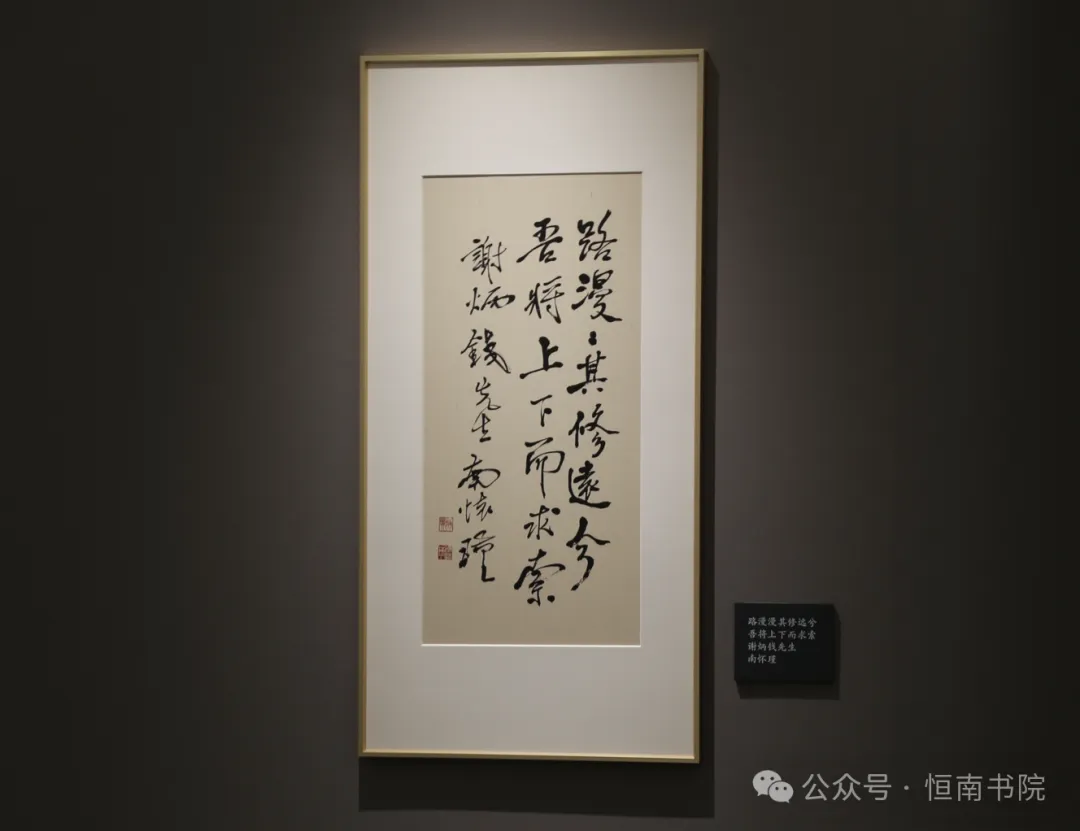 路漫〻其修遠兮
吾將上下而求索
謝炳錢先生 南懷瑾
路漫漫其修远兮
吾将上下而求索
谢炳钱先生
南怀瑾
公众号·恒南书院